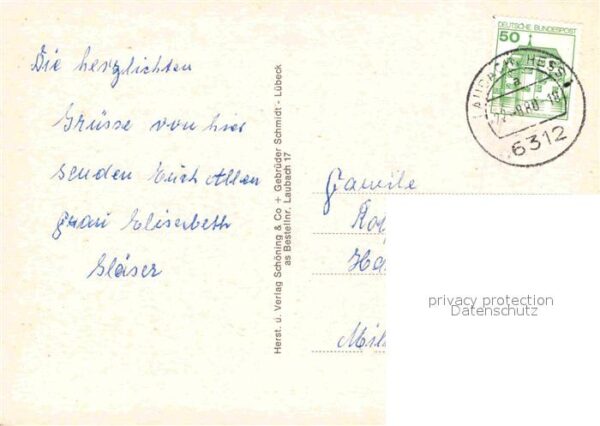 Die herzlichten
Grüsse von hier
senden Euch Allen
Frau Eliserbeth
Gläser
Herst. u. Verlag Schöning & Co + Gebrüder Schmidt - Lübeck
as Bestellnr. Laubach 17
DEUTSCHE BUNDESPOST
50
LAUBACH, HESS
a
6312
Familie
Ha
Mil
privacy protection
Datenschutz